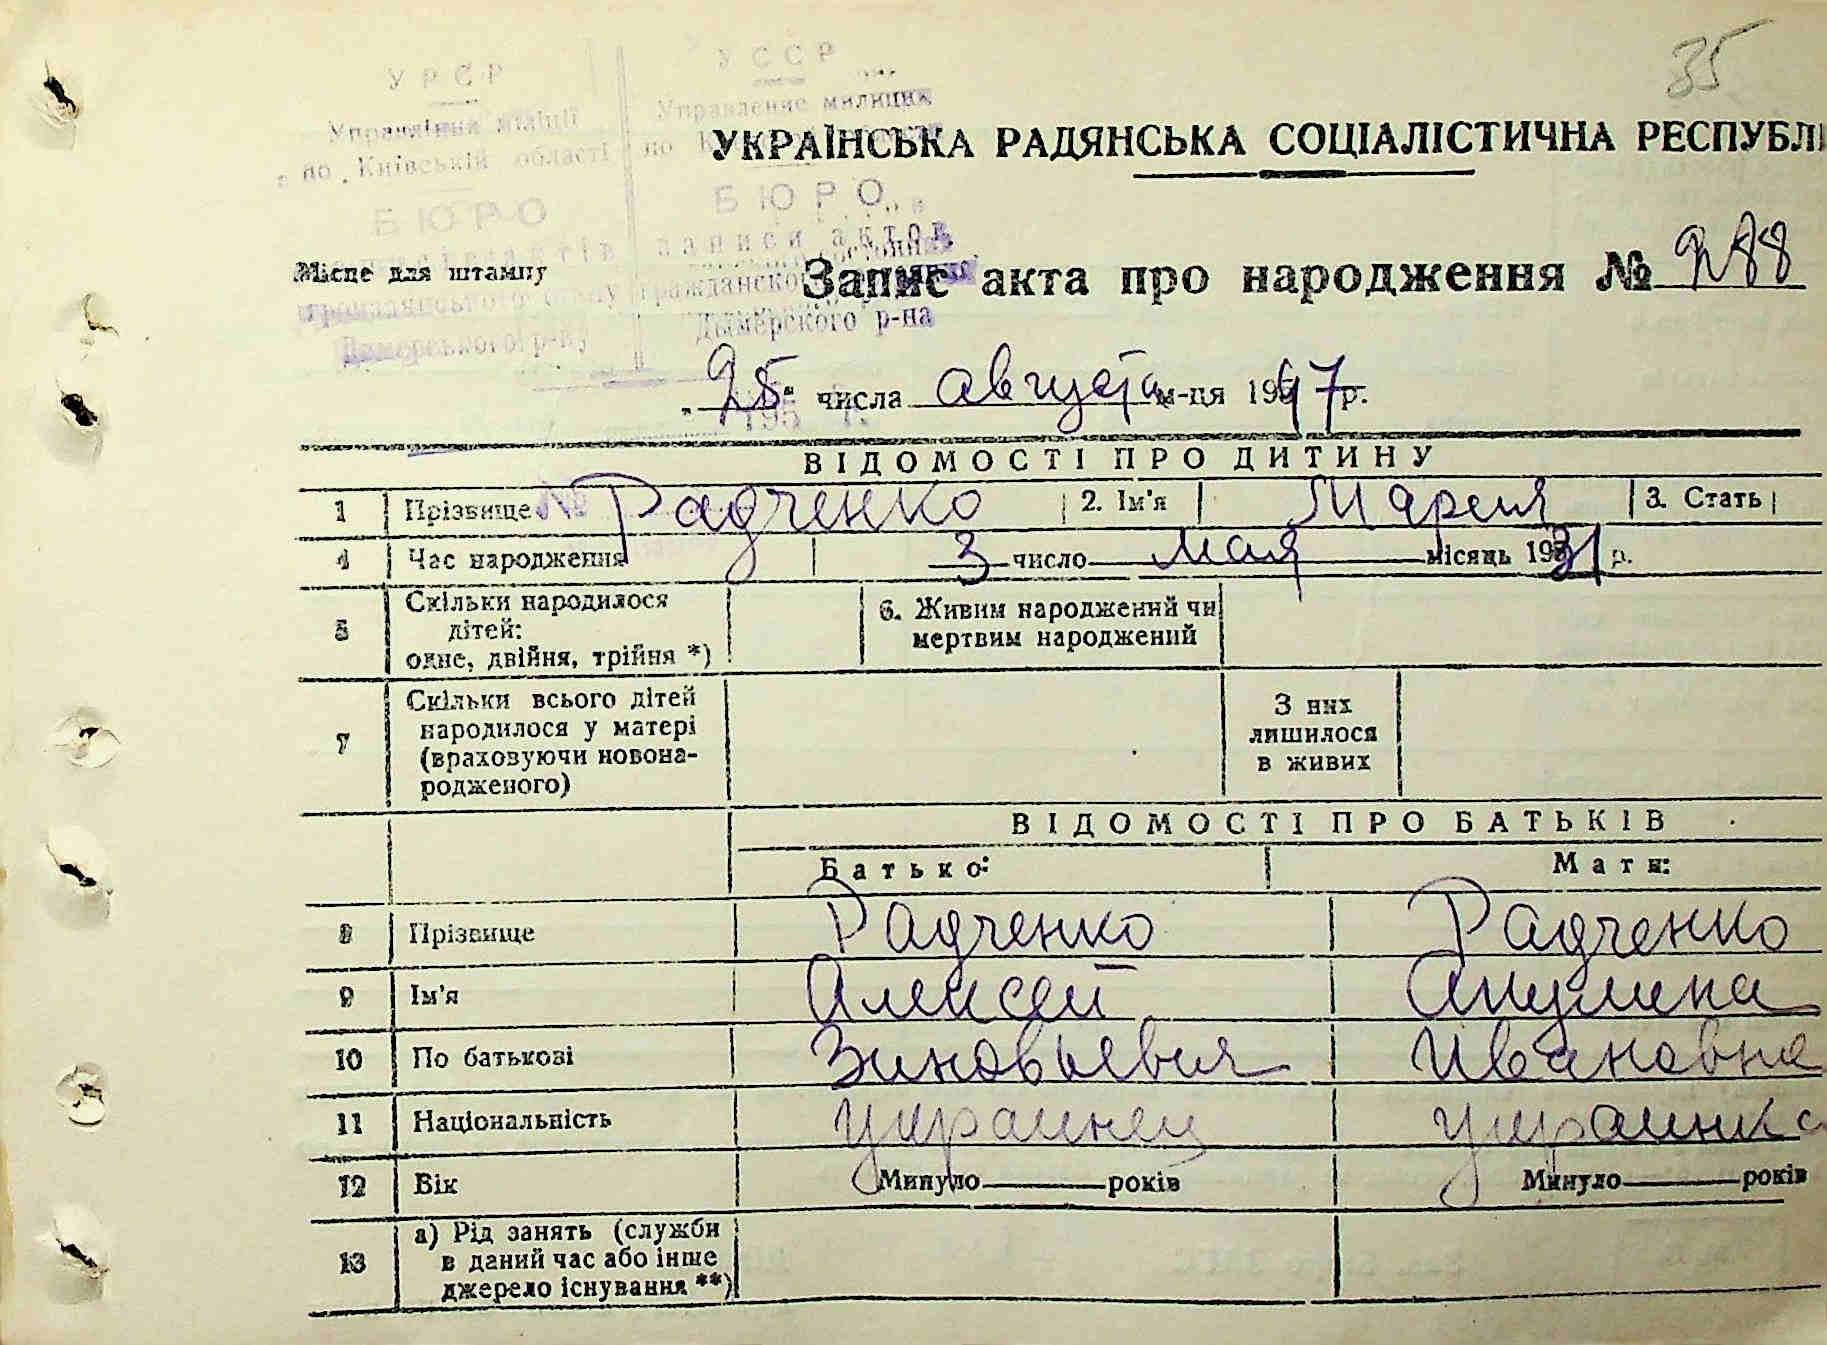 35
УРСР
Управління міліції
по Київській області
БЮРО
УССР
Управление милиции
по
БЮРО
записи актов
гражданского
Дымерского р-на
УКРАЇНСЬКА РАДЯНСЬКА СОЦІАЛІСТИЧНА РЕСПУБЛІ
Місце для штампу
Запис акта про народження № 288
„25" числа августа м-ця 1947 р.
ВІДОМОСТІ ПРО ДИТИНУ
1 Прізвище Радченко 2. Ім'я Мария 3. Стать
4 Час народження 3 число мая місяць 1931 р.
5 Скільки народилося дітей: одне, двійня, трійня *) 6. Живим народжений чи мертвим народжений
7 Скільки всього дітей народилося у матері (враховуючи новона-родженого) З них лишилося в живих
ВІДОМОСТІ ПРО БАТЬКІВ
Батько: Мати:
8 Прізвище Радченко Радченко
9 Ім'я Алексей Акулина
10 По батькові Зиновьевич Ивановна
11 Національність украинец украинка
12 Вік Минуло років Минуло років
13 а) Рід занять (служби в даний час або інше джерело існування **)